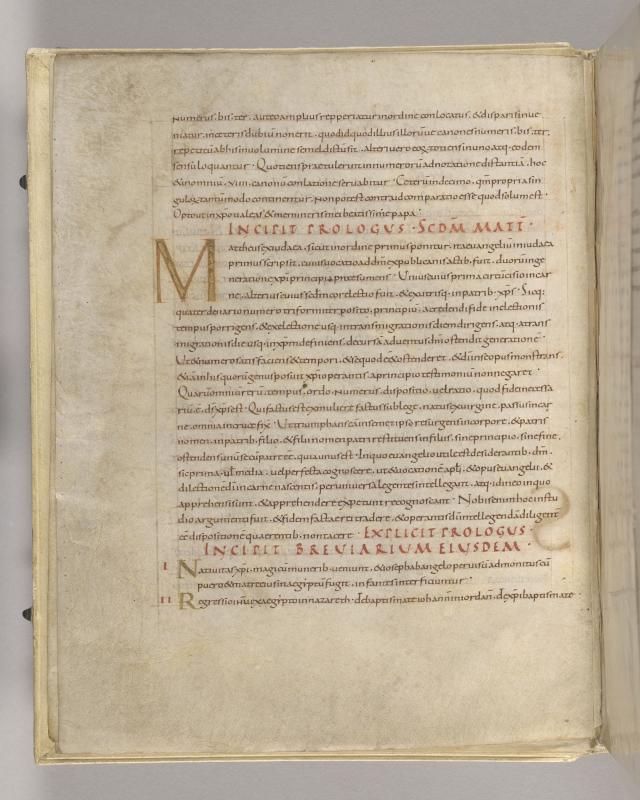 numerus. bis. ter. aut eo amplius repperiatur in ordine conlocatus. & dispari sinue
niatur. incęteris dubium non erit. quod id quod illius illorum ue canones numeris. bis. ter.
repetitū ab his in uolumine semel dictū sit. alteri uero ex totiens in uno atq. eodem
sensu loquantur. Quotiens praetulerunt in numerorū adnotatione distantiā. hoc
& in omniū. XIIII. canonū conlatione seruabitur. Ceterū in decimo. qm̄ propria sin
gulis tantūmodo continentur. non potest contra ud comparatio esse quod solum est.
Opto ut in xp̄o ualeas & memineris mei beatissime papa.
INCIPIT PROLOGUS. SCDM̄ MATT̄.
Mattheus ex iudaea. sicut in ordine primus ponitur. ita euangeliū in iudaea
primus scripsit. cuius uocatio ad dm̄ ex publicanis actib. fuit. duorū in ge
neratione xp̄i principia praesumens. Unius cuius prima circūcisio in car
ne. alterius cuius scdm̄ cor electio fuit. & ex utrisq. in patrib. xp̄s. Sicq.
quaterdenario numero triformiter posito. principiū. a credendi fide in electionis
tempus porrigens. & ex electione usq. in transmigrationis diem dirigens. atq. a trans
migrationis die usq. in xp̄m definiens. decursā aduentus dn̄i ostendit generationē.
Ut & numero satisfaciens & tempori. & se quod e& ostenderet. & dī in se opus monstrans.
& iā in his quorū genus posuit xp̄i operantis a principio testimonium non negaret.
Quarū omniū rerū. tempus. ordo. numerus. dispositio. uel ratio. quod fidei necessa
riū ē. ds̄ xp̄s est. Qui factus est ex muliere. factus sub lege. natus ex uirgine. passus in car
ne. omnia in cruce fixit. Ut triumphans ea in semetipso resurgens in corpore. & patris
nomen. in patrib. filio. & filii nomen patri restituens in filiis. sine principio. sine fine.
ostendens unū se cū patre eē. quia unus est. In quo euangelio utile est desiderantib. dm̄.
sic prima. ul̄ media. uel perfecta cognoscere. ut & uocationē apl̄i. & opus euangelii. &
dilectionē dī in carne nascentis. per uniuersa legentes intellegant. atq. id in eo in quo
apprehensi sunt. & apprehendere expetunt recognoscant. Nobis enim hoc in stu
dio argumenti fuit. & fidem factae rei tradere. & operantis dī intellegendā diligent
eē dispositionē quaerentib. non tacere. EXPLICIT PROLOGUS.
INCIPIT BREVIARIUM EIUSDEM.
I Natiuitas xp̄i. magi cū munerib. ueniunt. & ioseph ab angelo per uisū admonitus cū
puero & matre eius in aegyptū fugit. infantes interficiuntur.
II Regressio ihū ex aegypto in nazareth. de baptismate iohannis in iordan̄. & xp̄i baptismate